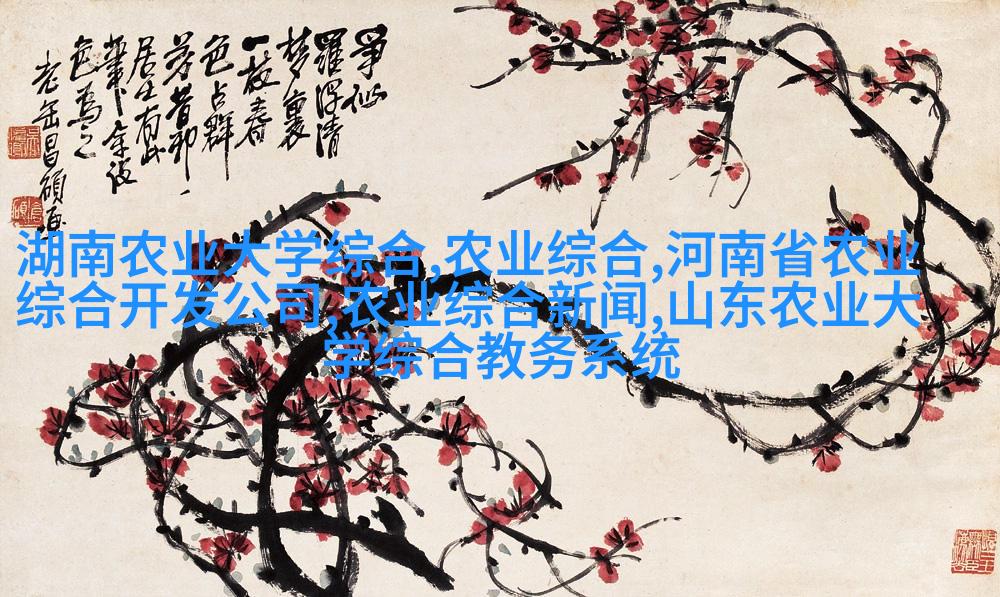 爭似
羅浮清
夢裏
一枝春
色占群
芳昔邪
居士有此
筆余
色為之
老缶昌碩
湖南农业大学综合,农业综合,河南省农业
综合开发公司,农业综合新闻,山东农业大
学综合教务系统